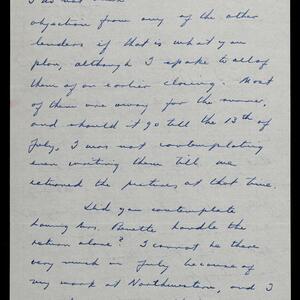 I do not
objection from any of the other
lenders if that is what you
plan, although I spoke to all of
them of an earlier closing. Most
of them are away for the summer,
and should it go till the 13th of
July, I was not contemplating
even writing them till we
returned the pictures at that time.
Did you contemplate
having Mrs. handle the
return alone? I cannot be there
very much in July because of
my work at Northwestern, and I